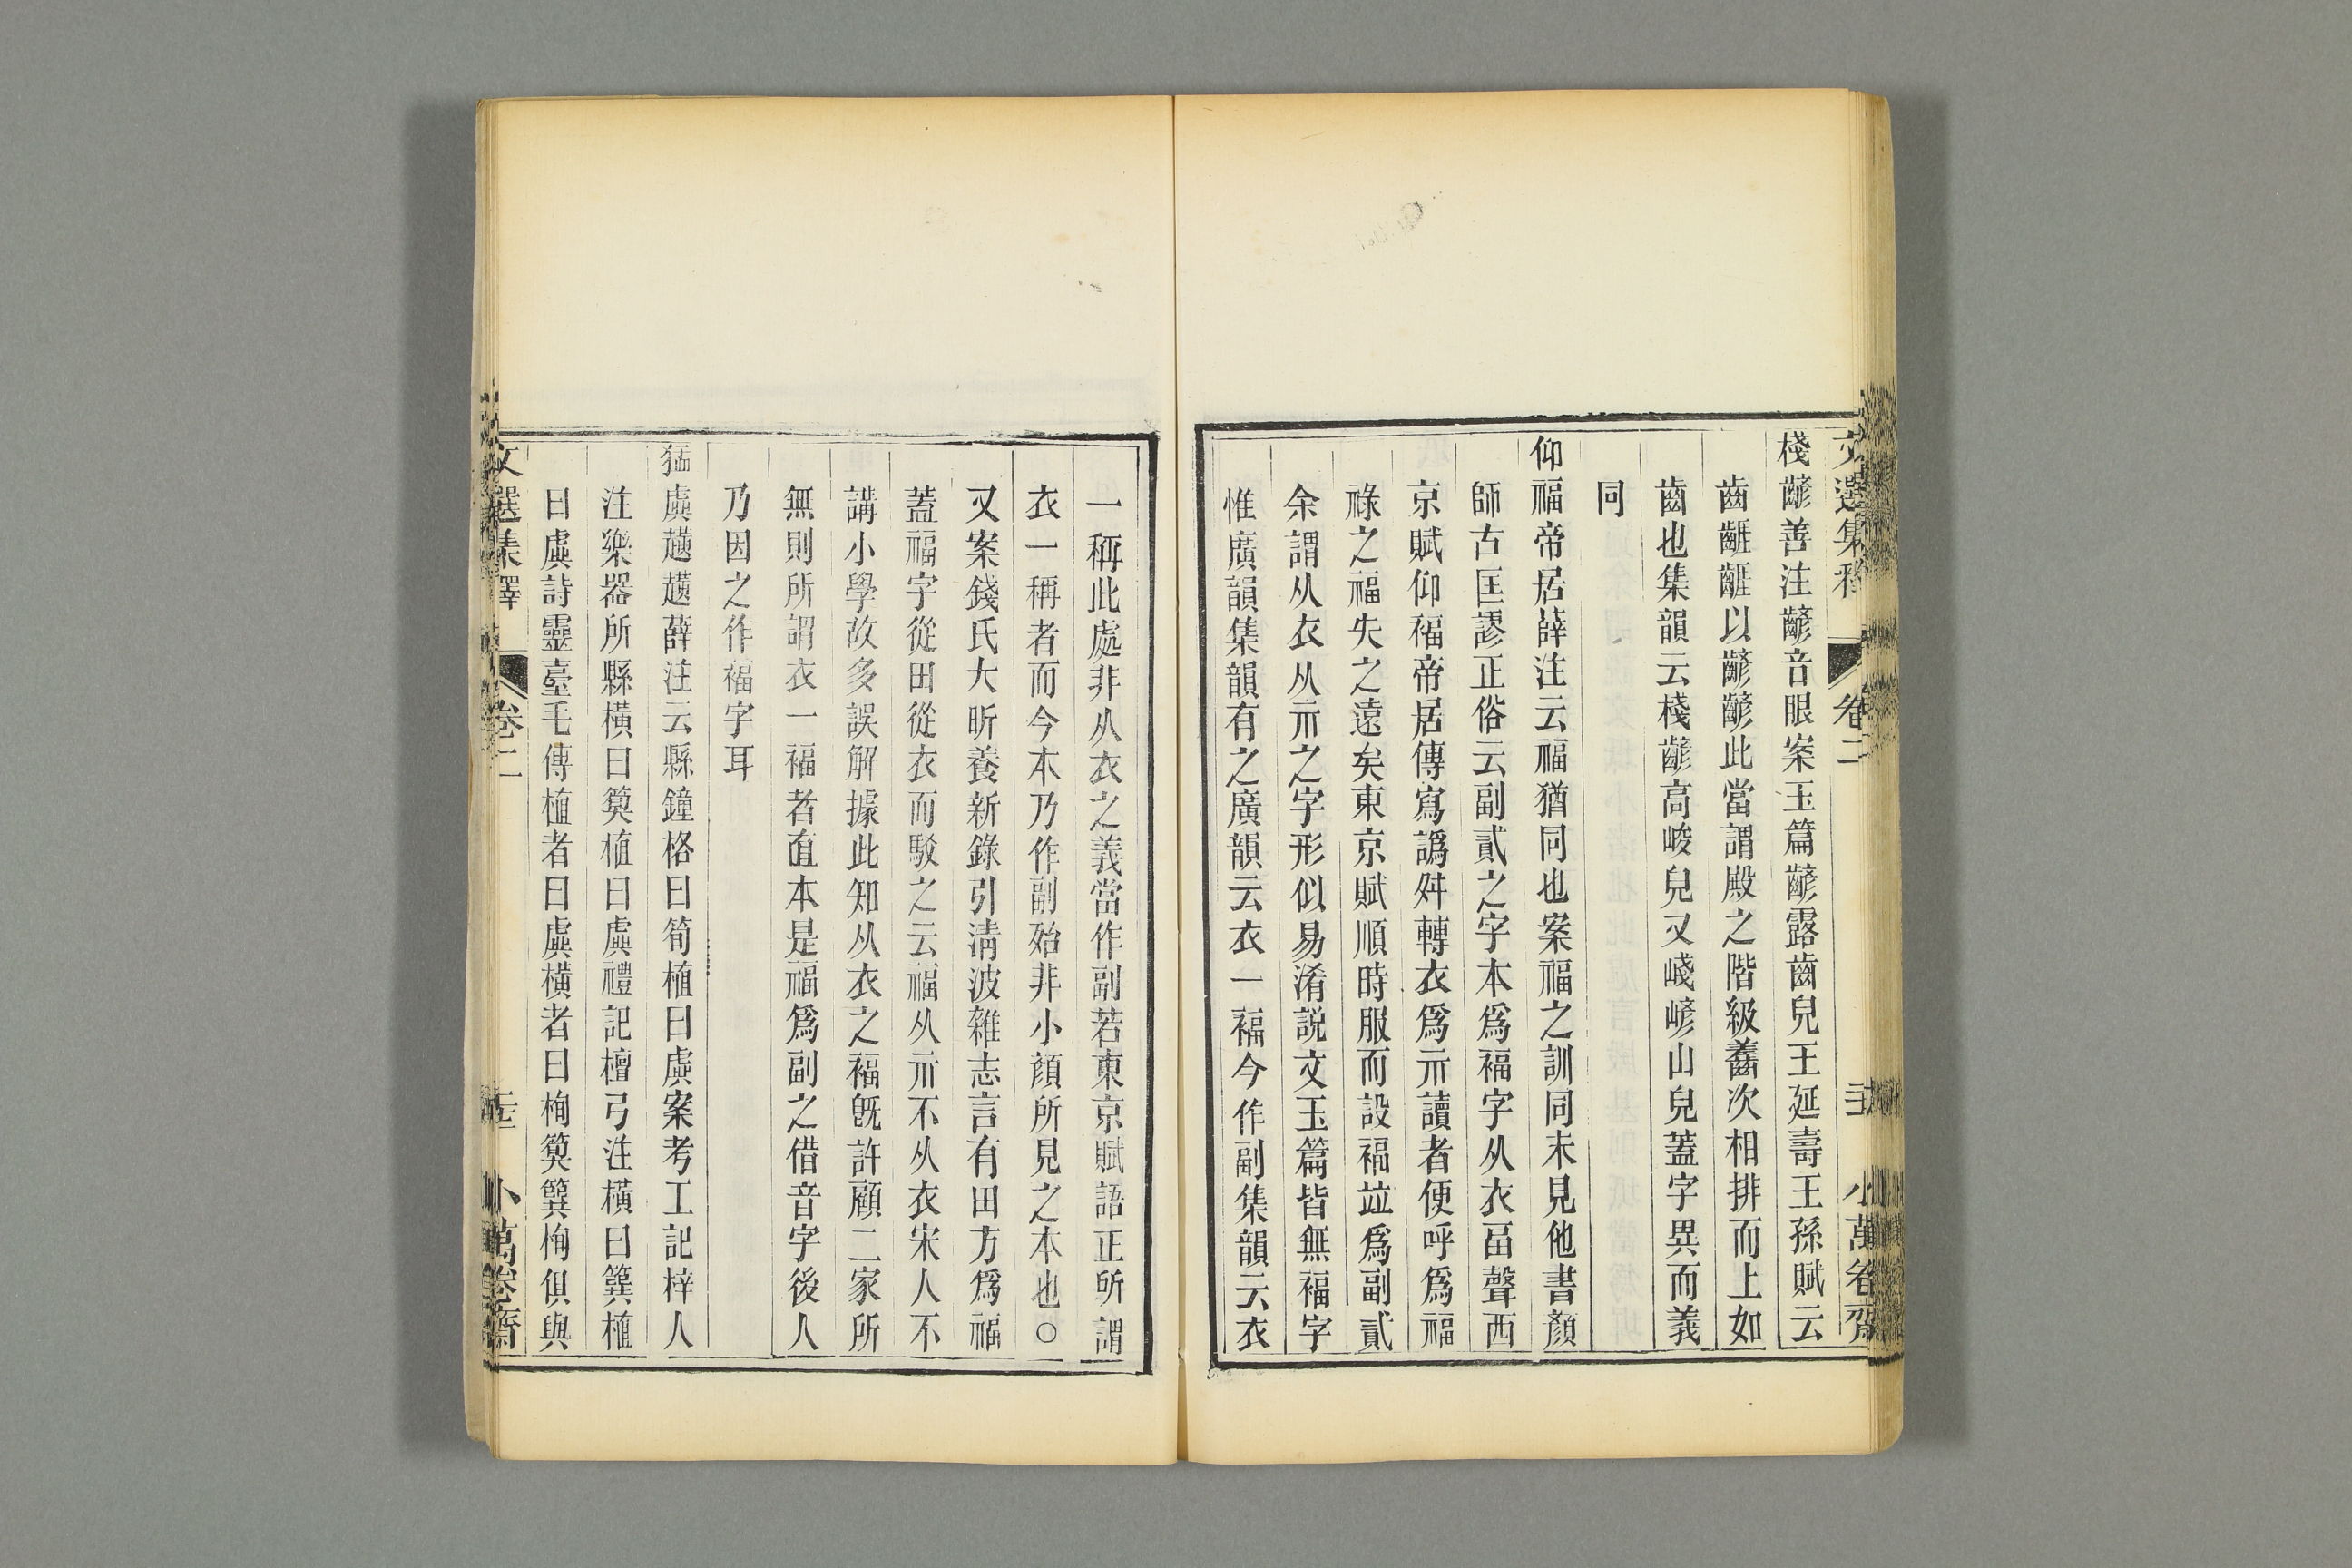 文選集釋 卷二 小萬卷齋
棧齴善注齴音眼案玉篇齴露齒皃王延壽王孫賦云
齒齜齜以齴齴此當謂殿之階級齹次相排而上如
齒也集韻云棧齴高峻皃又嶘嵃山皃蓋字異而義
同
仰福帝居薛注云福猶同也案福之訓同未見他書顏
師古匡謬正俗云副貳之字本爲褔字从衣畐聲西
京賦仰褔帝居傳寫譌舛轉衣爲示讀者便呼爲福
祿之福失之遠矣東京賦順時服而設褔竝爲副貳
余謂从衣从示之字形似易淆說文玉篇皆無褔字
惟廣韻集韻有之廣韻云衣一褔今作副集韻云衣
一稱此處非从衣之義當作副若東京賦語正所謂
衣一稱者而今本乃作副殆非小顏所見之本也○
又案錢氏大昕養新錄引清波雜志言有田方爲福
蓋福字從田從衣而駁之云福从示不从衣宋人不
講小學故多誤解據此知从衣之褔旣許顧二家所
無則所謂衣一褔者直本是福爲副之借音字後人
乃因之作褔字耳
猛虡趪趪薛注云縣鐘格曰筍植曰虡案考工記梓人
注樂器所縣橫曰筍植曰虡禮記檀弓注橫曰簨植
曰虡詩靈臺毛傳植者曰虡橫者曰栒筍簨栒俱與
文選集釋 卷二 小萬卷齋